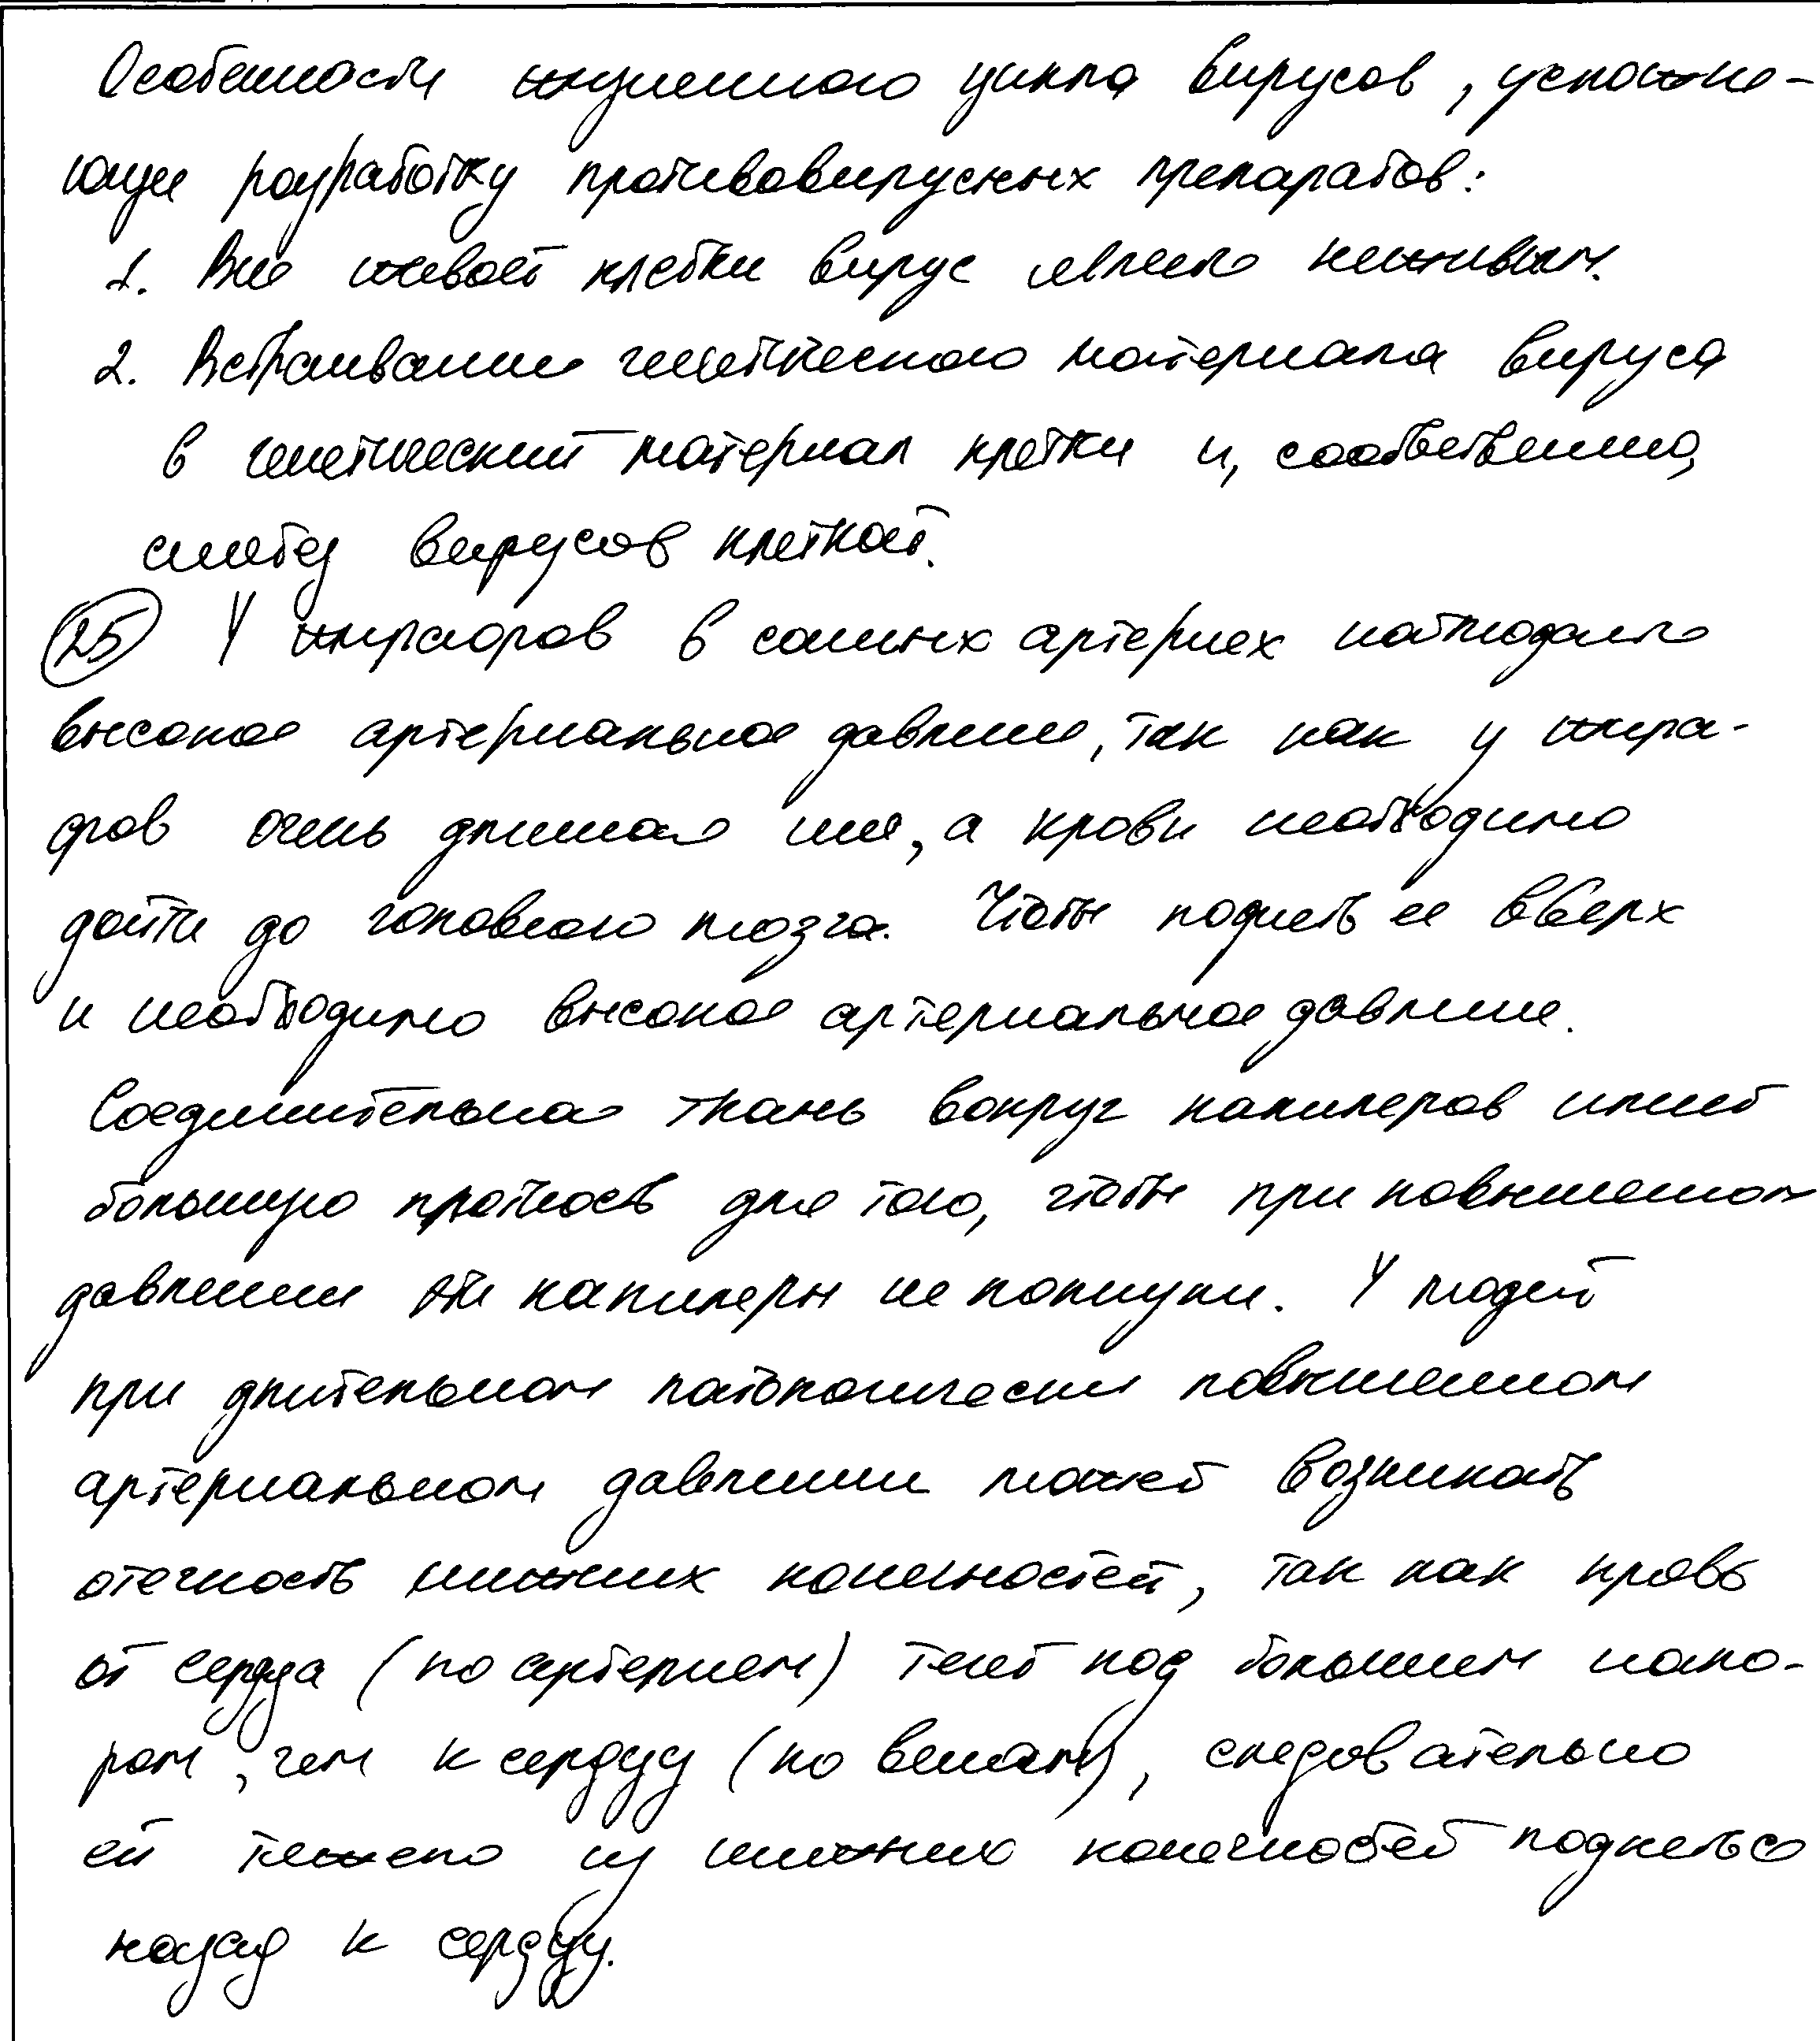 Особенности жизненного цикла вирусов, усложня-
ющие разработку противовирусных препаратов:
1. Вне живой клетки вирус является неживым.
2. Встраивание генетического материала вируса
в генетический материал клетки и, соответственно,
синтез вирусов клеткой.
25 У жирафов в сонных артериях наблюдается
высокое артериальное давление, так как у жира-
фов очень длинная шея, а крови необходимо
дойти до головного мозга. Чтобы поднять ее вверх
и необходимо высокое артериальное давление.
Соединительная ткань вокруг капиляров имеет
большую прочность для того, чтобы при повышенном
давлении эти капиляры не лопнули. У людей
при длительном патологически повышенном
артериальном давлении может возникать
отечность нижних конечностей, так как кровь
от сердца (по артериям) течет под большим напо-
ром, чем к сердцу (по венам), следовательно
ей тяжело из нижних конечностей подняться
назад к сердцу.